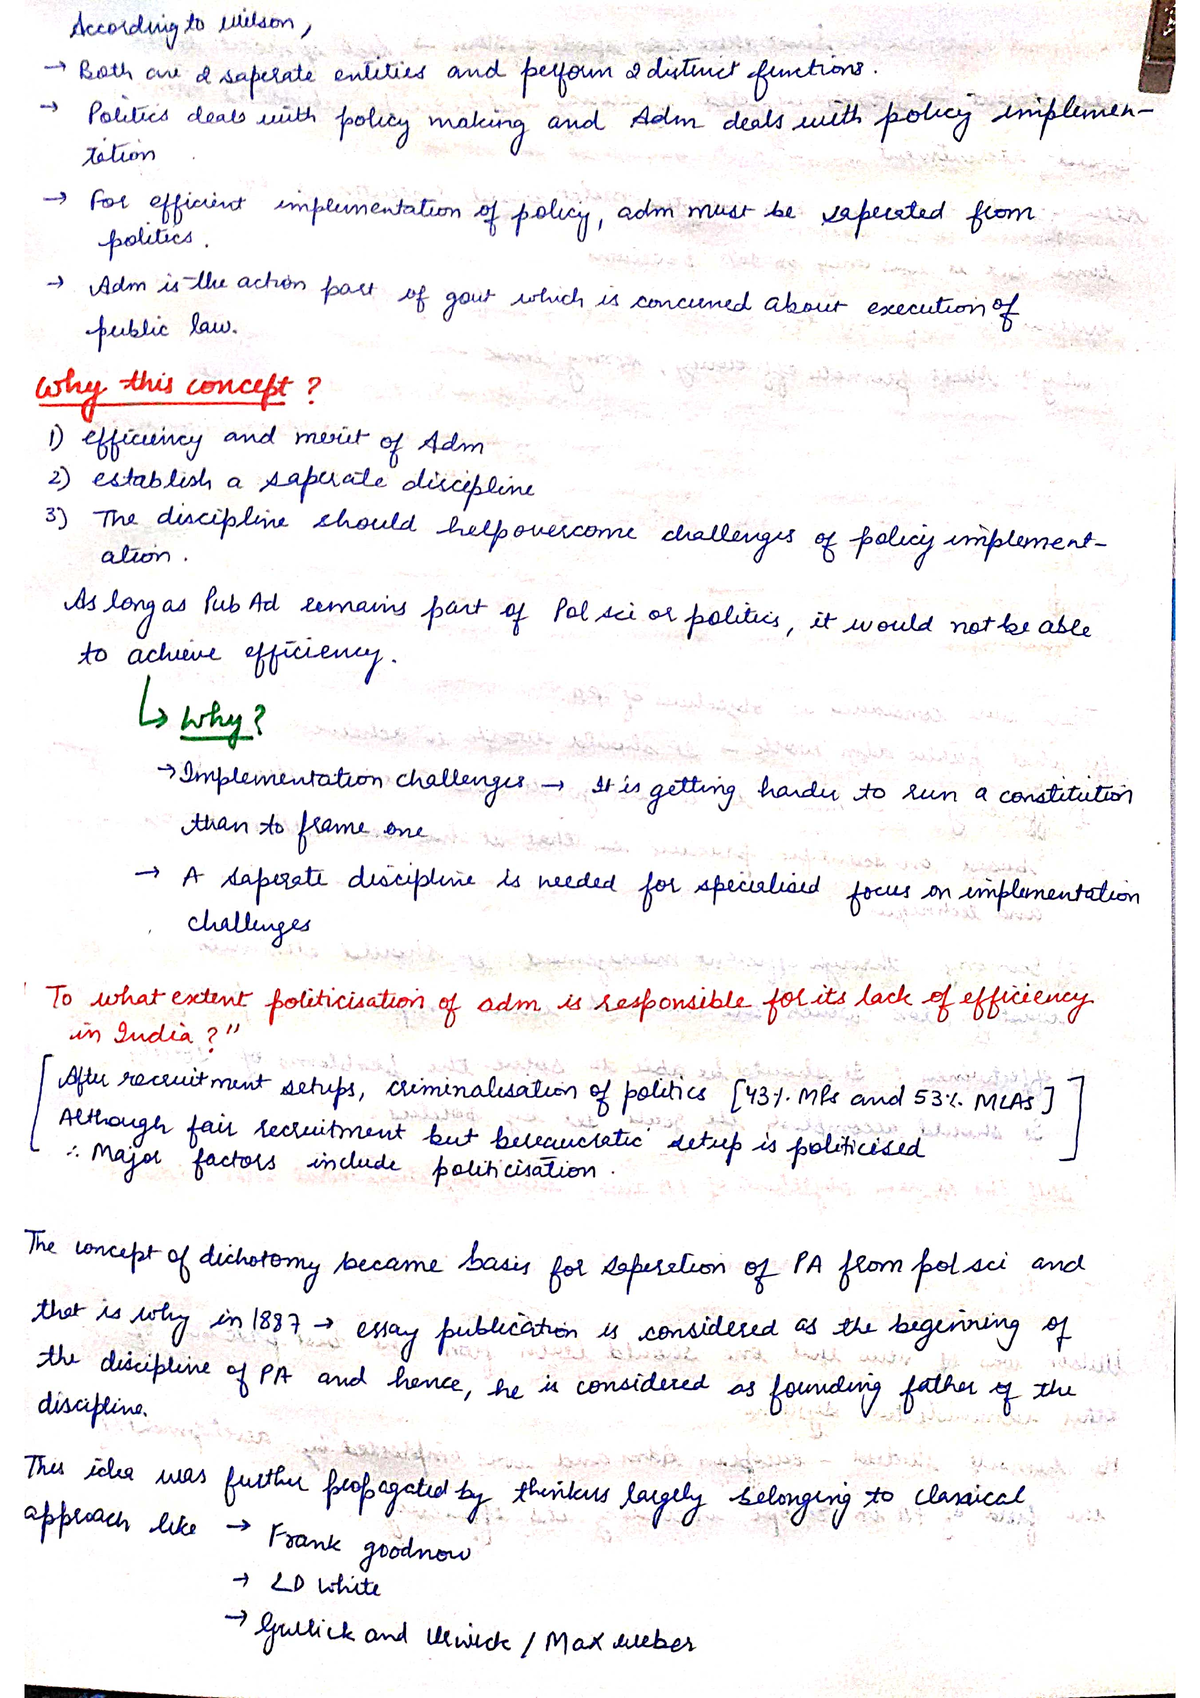 According to Wilson,
→ Both are 2 saperate entities and perform 2 distinct functions.
→ Politics deals with policy making and Adm deals with policy implemen-
tation
→ For efficient implementation of policy, adm must be saperated from
politics.
→ Adm is the action part of govt which is concerned about execution of
public law.
Why this concept?
1) efficiency and merit of Adm
2) establish a saperate discipline
3) The discipline should help overcome challenges of policy implement-
ation.
As long as Pub Ad remains part of Pol sci or politics, it would not be able
to achieve efficiency.
↳ Why?
→ Implementation challenges → It is getting harder to run a constitution
than to frame one
→ A saperate discipline is needed for specialised focus on implementation
challenges
To what extent politicisation of adm is responsible for its lack of efficiency
in India?"
[After recruitment setups, criminalisation of politics [43%. MPs and 53%. MLAs]
Although fair recruitment but bereaucratic setup is politicised
∴ Major factors include politicisation.]
The concept of dichotomy became basis for saperetion of PA from pol sci and
that is why in 1887 → essay publication is considered as the beginning of
the discipline of PA and hence, he is considered as founding father of the
discipline.
This idea was further propagated by thinkers largely belonging to classical
approach like → Frank goodnow
→ LD White
→ Gullick and Urwick / Max weber